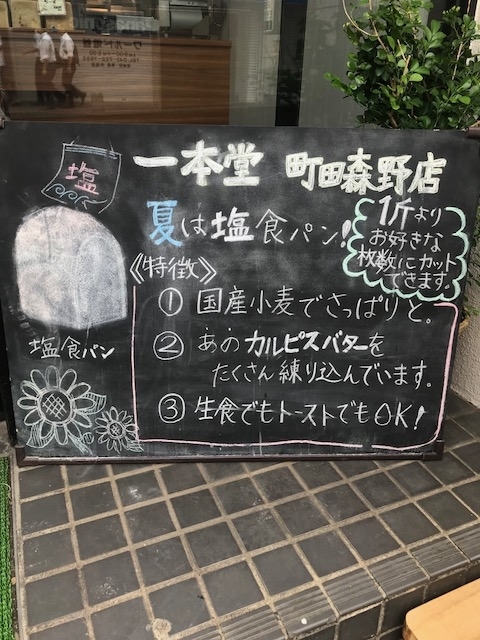 塩
一本堂 町田森野店
夏は塩食パン!
1斤より
お好きな
枚数にカット
できます。
《特徴》
① 国産小麦でさっぱりと。
② あのカルピスバターを
たくさん練り込んでいます。
③ 生食でもトーストでもOK!
塩食パン